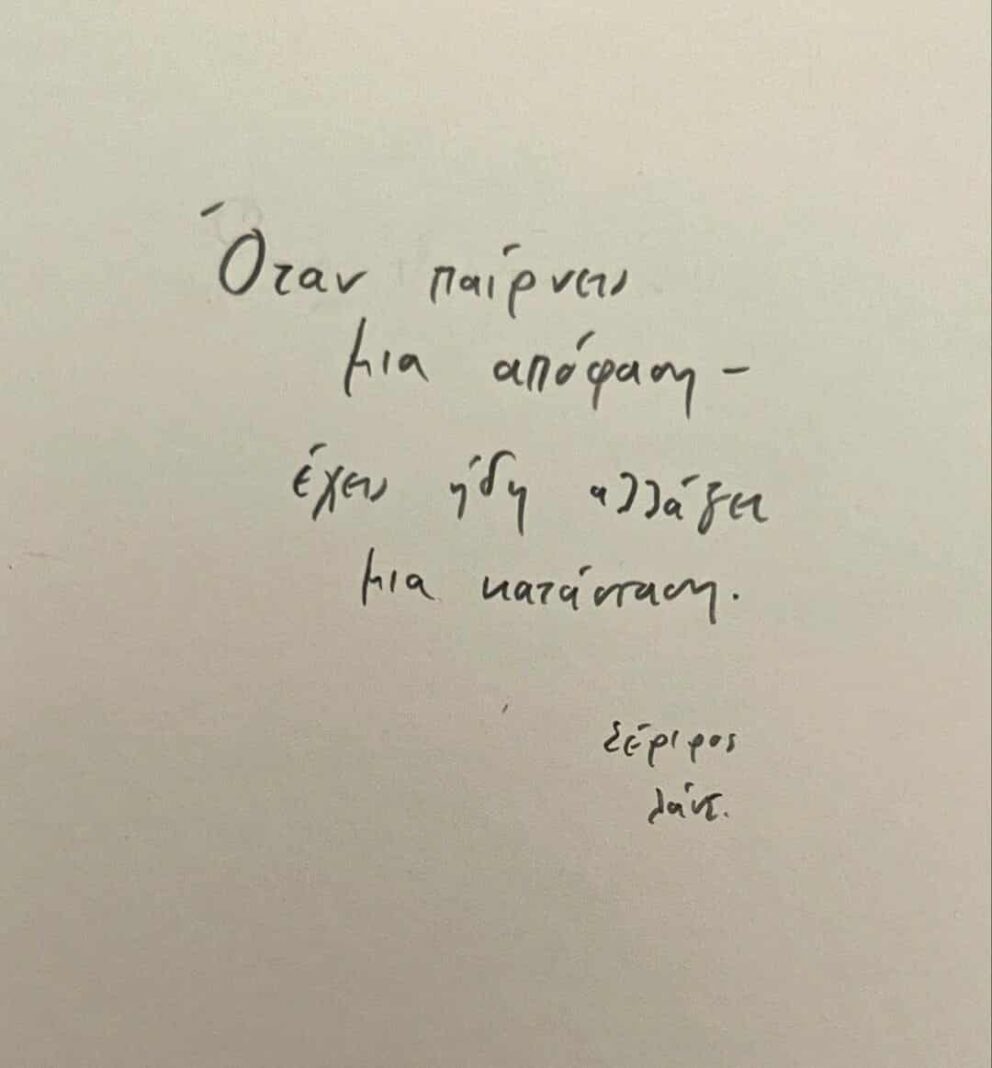 Όταν παίρνεις
μια απόφαση -
έχεις ήδη αλλάξει
μια κατάσταση.
Σέριφος
λάντ.